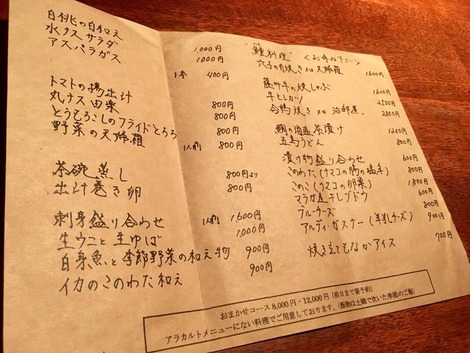 白桃の白和え 1,000円
水ナスサラダ 1,000円
アスパラガス 1本 400円
トマトの揚出汁 800円
丸ナス田楽 800円
とうもろこしのフライドとろろ 800円
野菜の天婦羅 1人前 800円
茶碗蒸し 800円より
出汁巻き卵 800円
刺身盛り合わせ 1人前 1,600円
生ウニと生ゆば 1,000円
白身魚と季節野菜の和え物 900円
イカのこのわた和え 900円
料理
穴子の白焼き 又は 天婦羅 1600円
牛ヒレカツ
合鴨焼き 又は 治部煮
鯛の 茶漬け 1200円
五島うどん 800円
漬け物盛り合わせ 600円
このわた(ナマコの腸の塩辛) 800円
このこ(ナマコの卵巣) 1800円
マラガ産干しブドウ 600円
ブルーチーズ
アルディ・ガスナー(羊乳チーズ) 900円
焼き立てもなかアイス 700円
おまかせコース 8,000円・12,000円(前日まで要予約)
アラカルトメニューにない料理でご用意しております。(飯物は土鍋で炊いた季節のご飯)